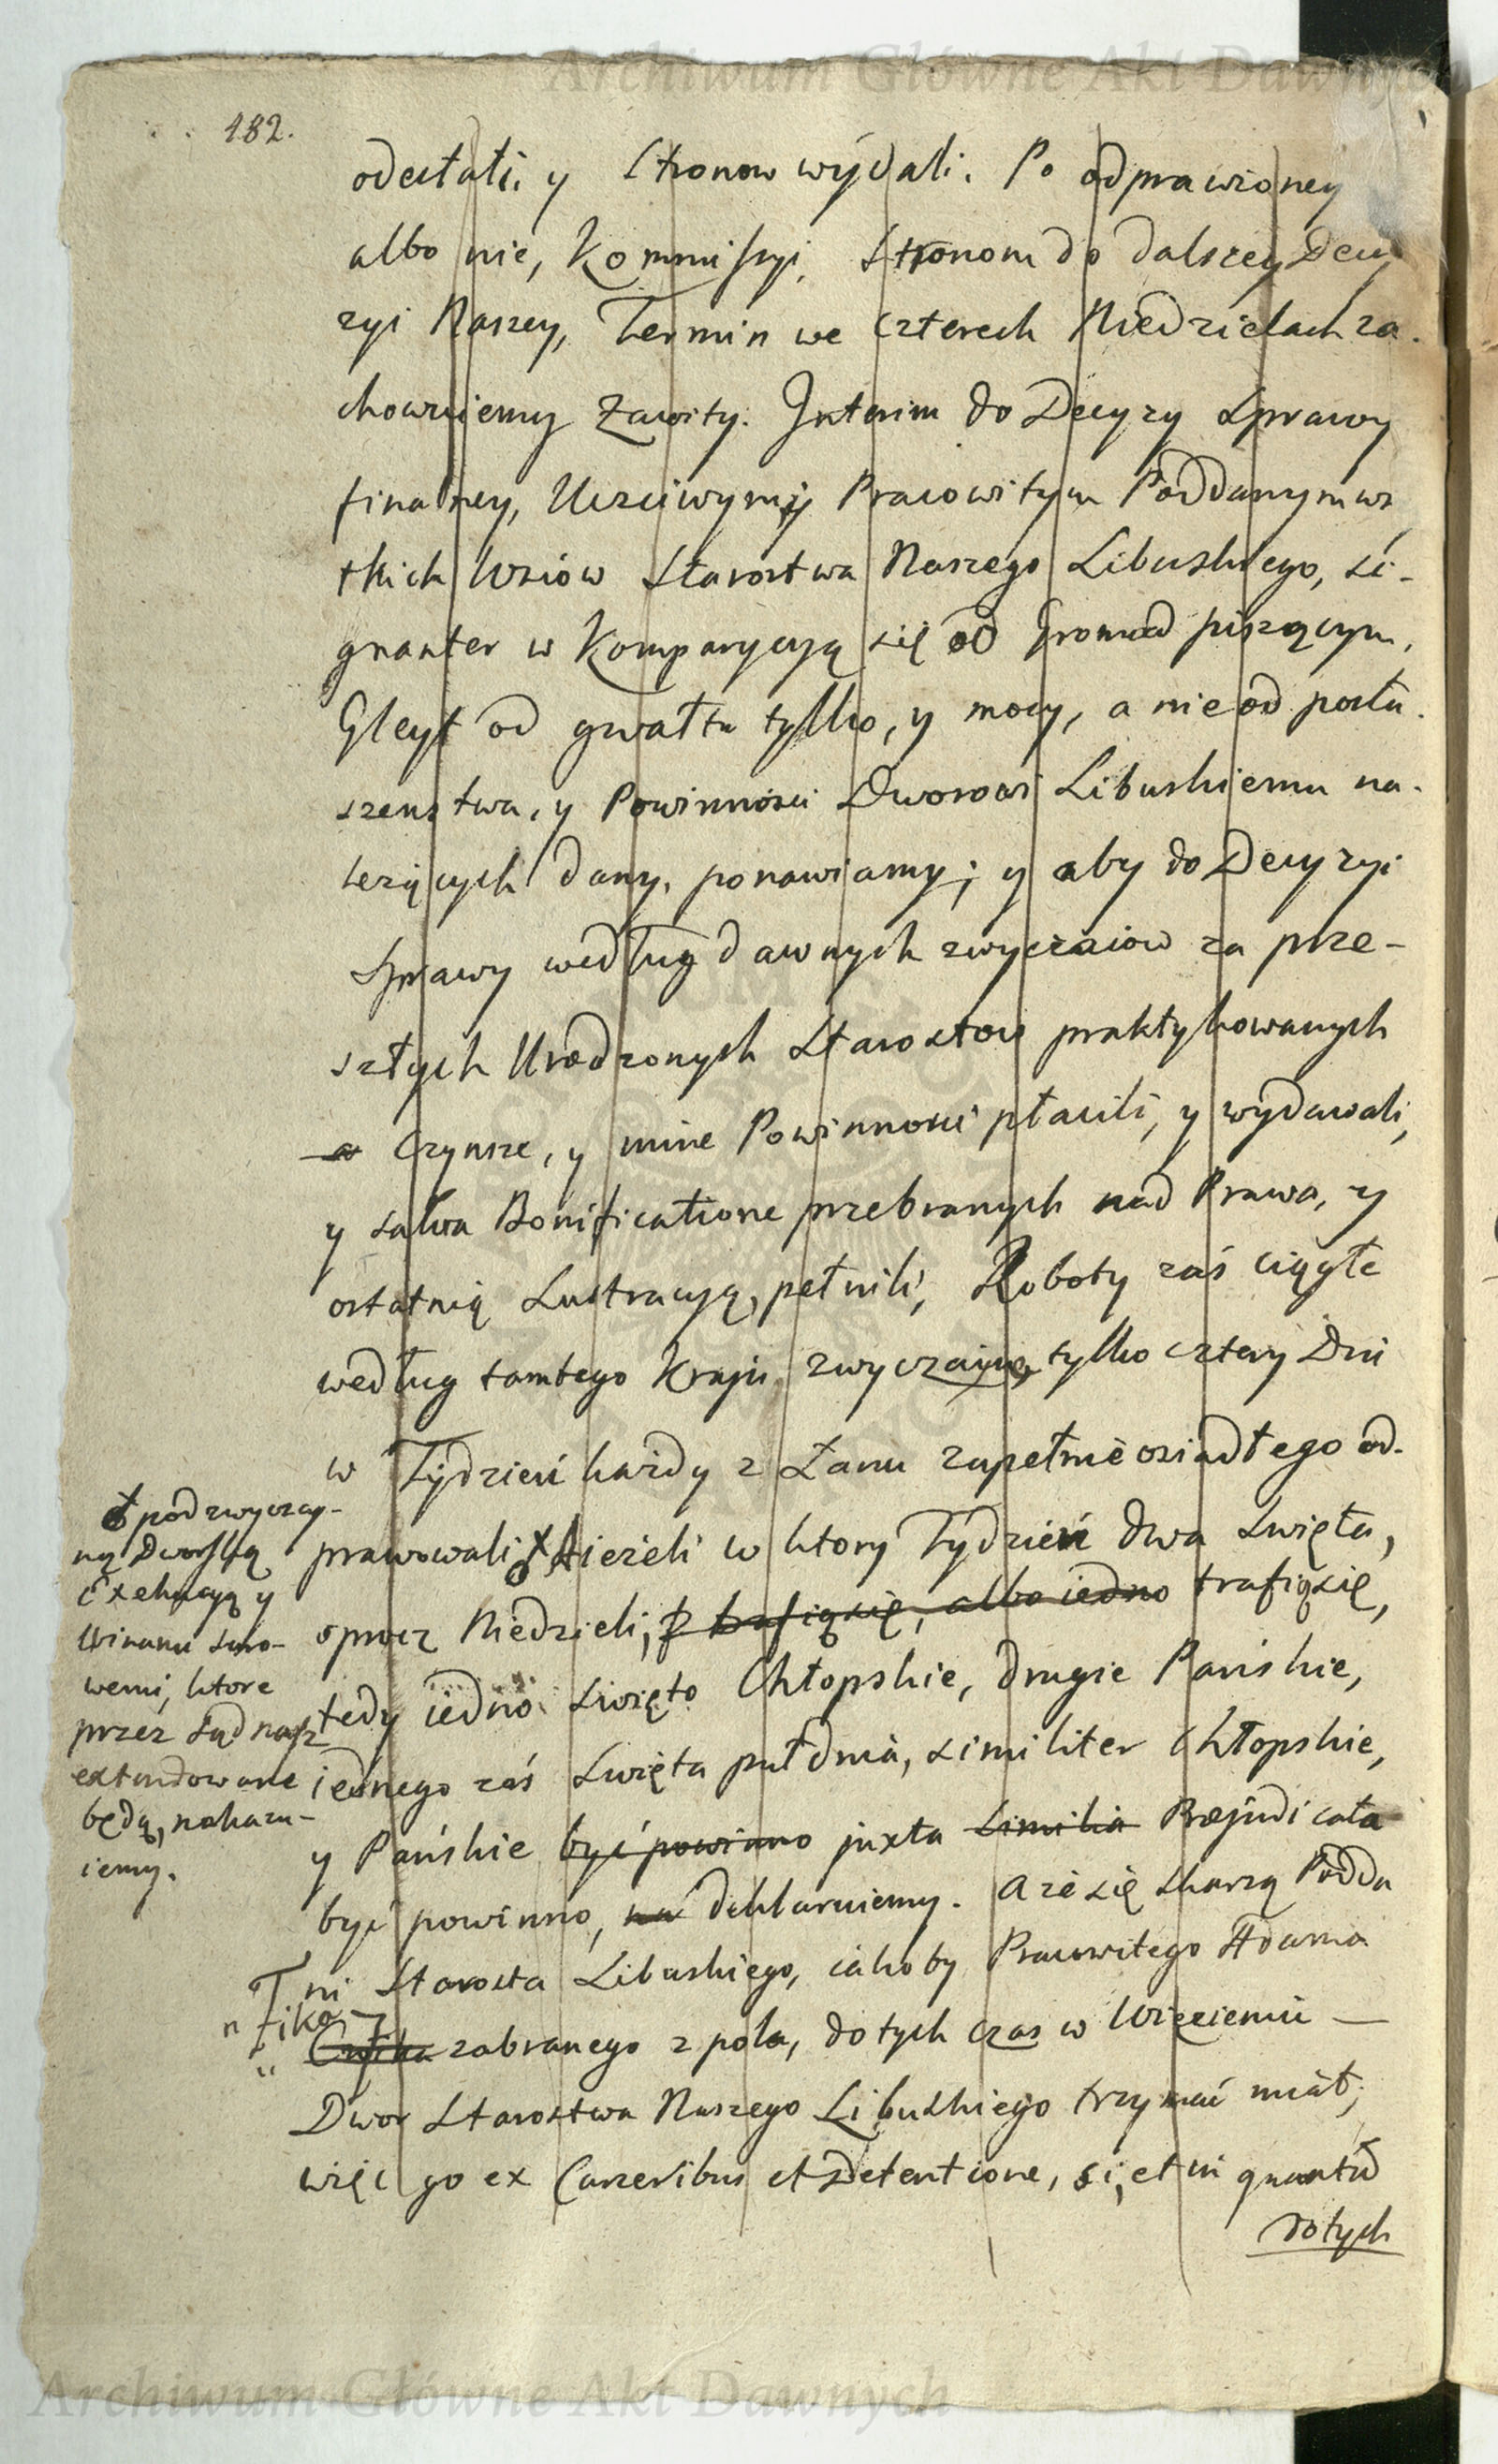 Archiwum Główne Akt Dawnych
182.
odesłali, y Stronow wydali. Po odprawioney
albo nie, Kommissyi, Stronom do dalszey Decy
zyi Naszey, Termin we czterech Niedzielach za.
chowuiemy Zawity. Interim do Decyzy Sprawy
finalney, Uczciwym y Pracowitym Poddanym ws
tkich Wsiow Starostwa Naszego Libuskiego, si-
gnanter w Komparycyą się od Gromad piszącym,
Gleyt od gwałtu tylko, y mocy, a nie od posłu.
szenstwa, y Powinnosci Dworowi Libuskiemu na.
leżących dany, ponawiamy; y aby do Decyzyi
Sprawy według dawnych zwyczaiow za prze-
szłych Urodzonych Starostow praktykowanych
a Czynsze, y inne Powinnosci płacili, y wydawali,
y salva Bonificatione przebranych nad Prawa, y
ostatnią Lustracyą, pełnili, Roboty zaś ciągłe
według tamtego Kraju zwyczaiu, tylko cztery Dni
w Tydzień każdy z Łanu zupełnie osiadłego od-
prawowali, A ieżeli w ktory Tydzień dwa Swięta,
oprocz Niedzieli, trafią się, albo iedno trafią się,
tedy iedno Swięto Chłopskie, drugie Pańskie,
iednego zaś Swięta puł dnia, similiter Chłopskie,
y Pańskie być powinno juxta Similia Præjudicata
być powinno, deklaruiemy. A że się skarżą Podda
ni Starosta Libuskiego, iakoby Pracowitego Adama
zabranego z pola, do tych czas w Więzieniu —
Dwor Starostwa Naszego Libuskiego trzymać miał;
więc go ex Carceribus et Detentione, si, et in quantũ
dotych
pod zwyczay-
ną Dworską
Exekucyą y
Winami suro-
wemi, ktore
przez Sąd nasz
extendowane
będą, nakazu-
iemy.
Archiwum Główne Akt Dawnych